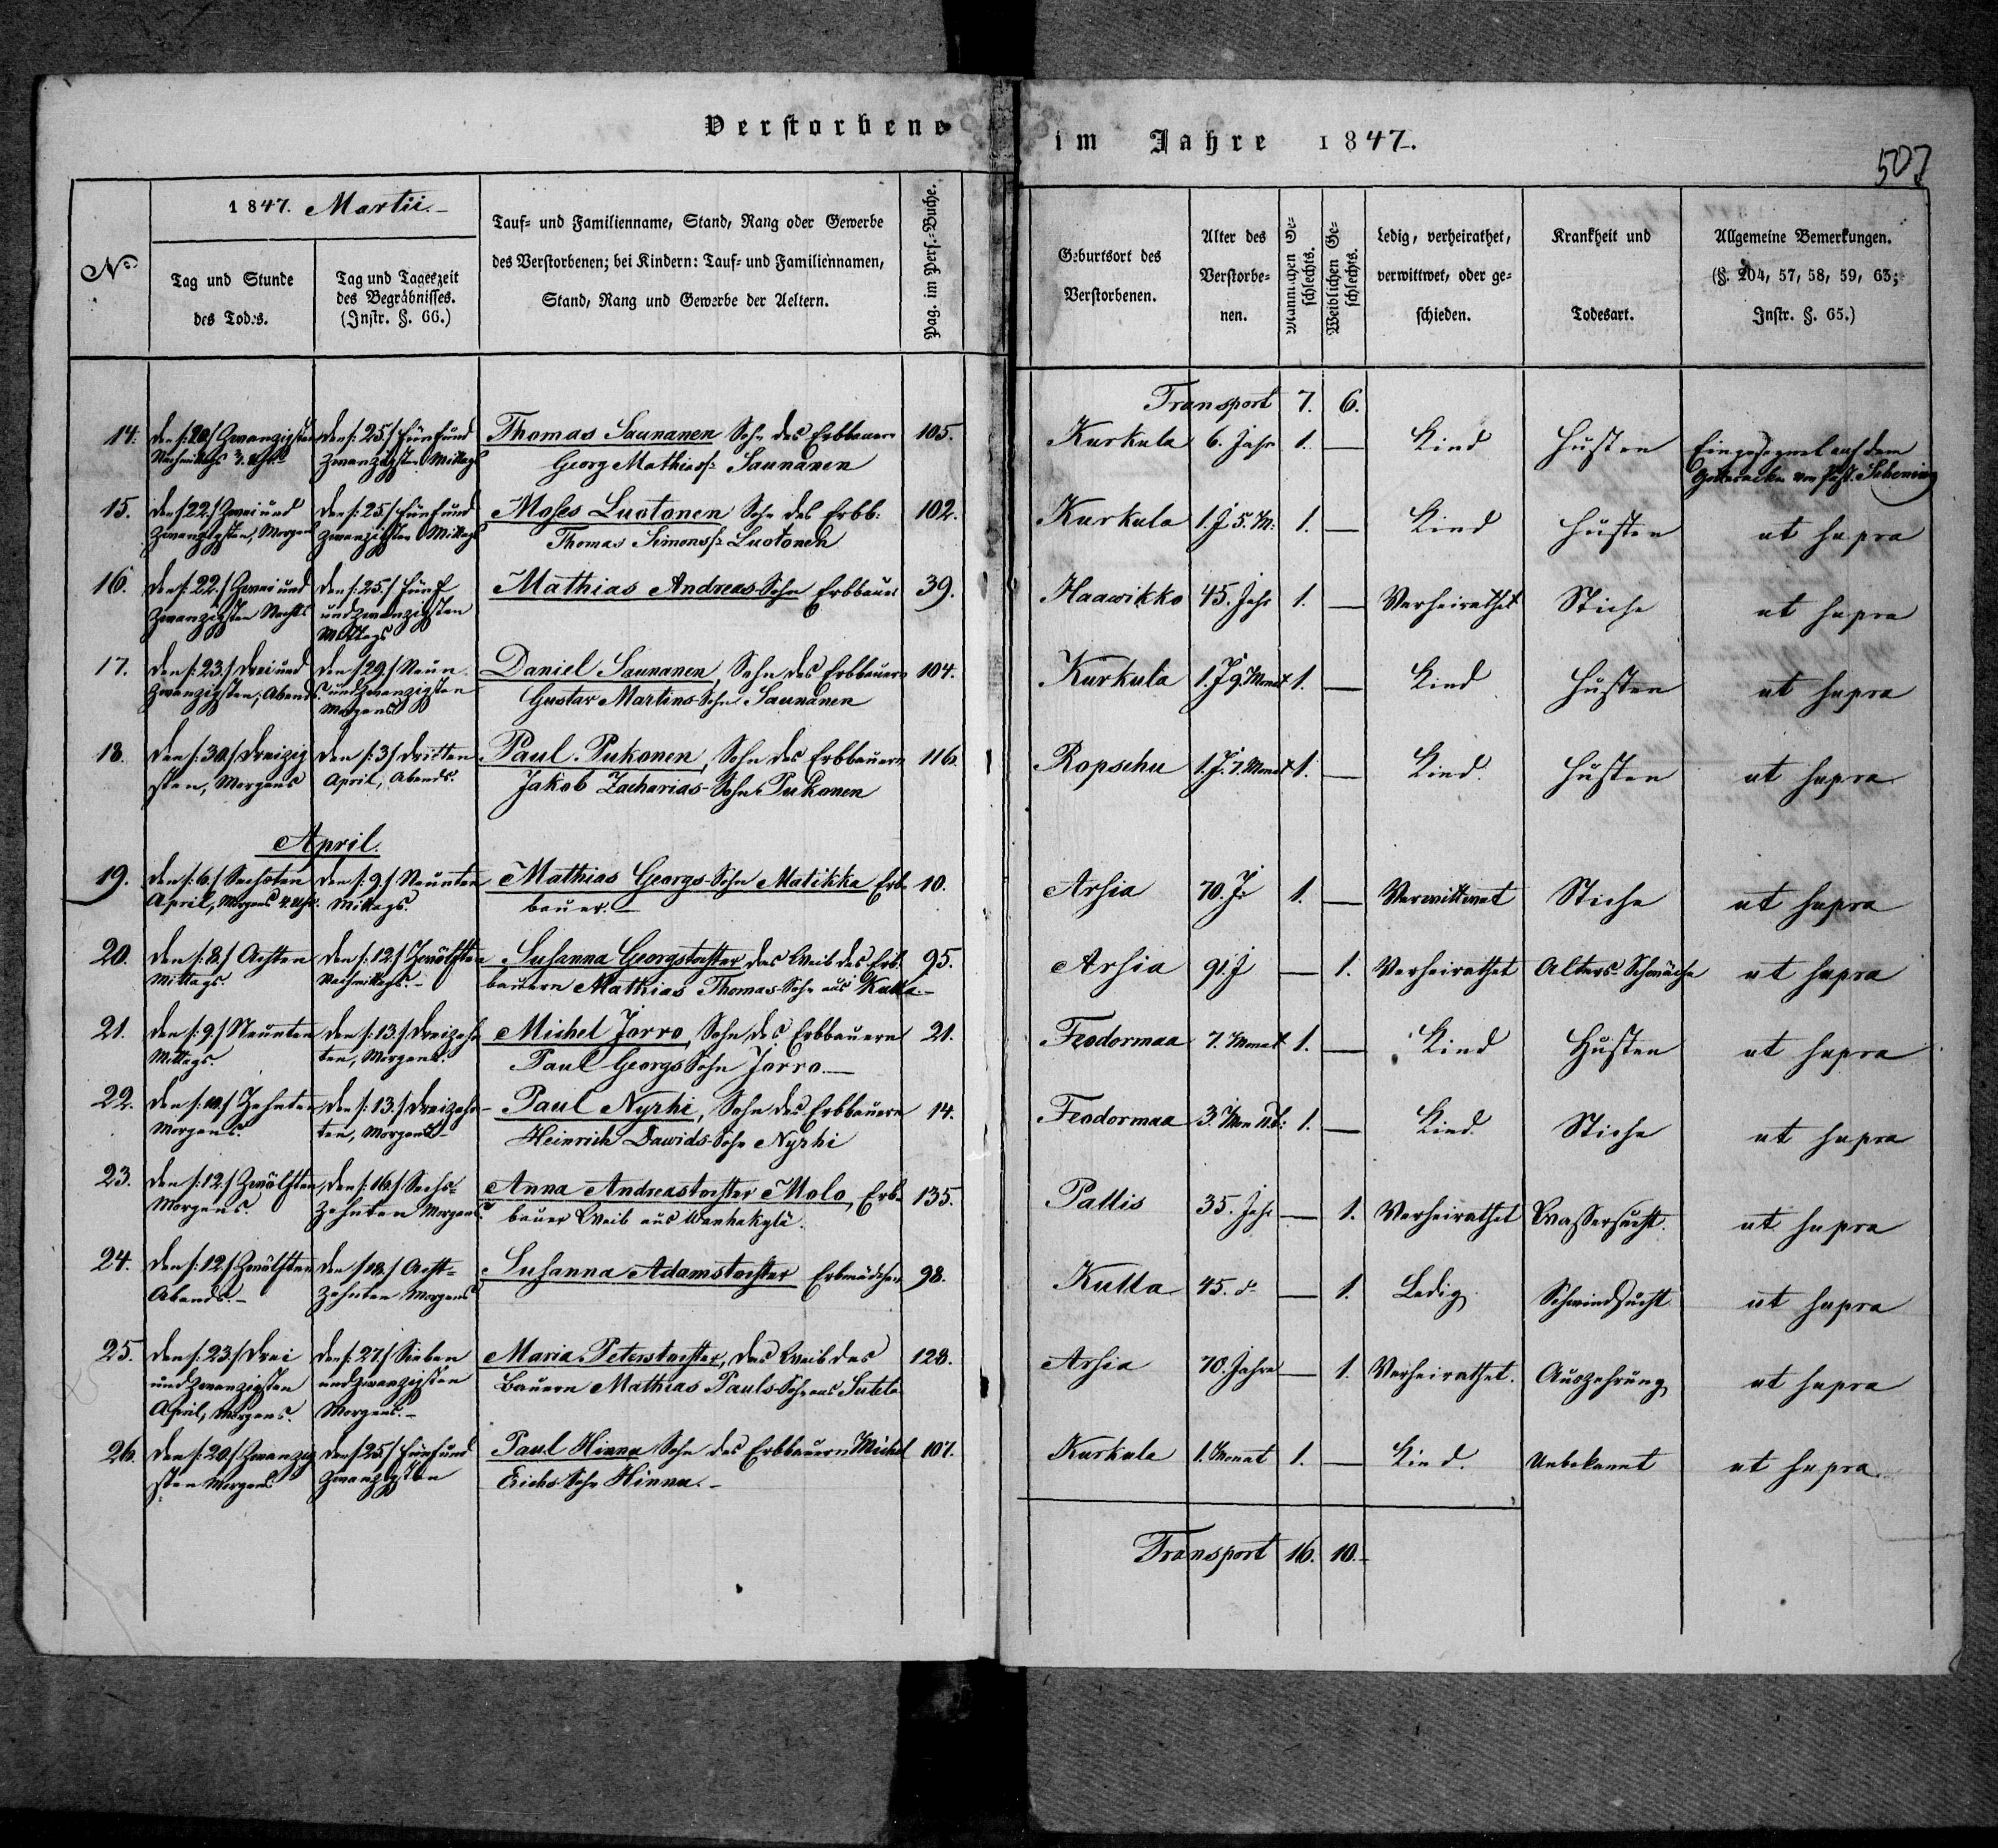 Verstorbene im Jahre 1847.
507
No
1847. Martii.
Tag und Stunde
des Todes.
Tag und Tageszeit
des Begräbnisses.
(Instr. §. 66.)
Tauf- und Familienname, Stand, Rang oder Gewerbe
des Verstorbenen; bei Kindern: Tauf- und Familiennamen,
Stand, Rang und Gewerbe der Aeltern.
Pag. im Pers.-Buche.
Geburtsort des
Verstorbenen.
Alter des
Verstorbe-
nen.
Männlichen Ge-
schlechts.
Weiblichen Ge-
schlechts.
Ledig, verheirathet,
verwittwet, oder ge-
schieden.
Krankheit und
Todesart.
Allgemeine Bemerkungen.
(§. 204, 57, 58, 59, 63;
Instr. §. 65.)
Transport 7. 6.
14. den /:20:/ Zwanzigsten den /:25:/ Fünfund Thomas Saunanen Sohn des Erbbauern 105. Kurkula 6. Jahr 1. — Kind Husten Eingesegnet auf dem
Nachmittags 3. Uhr zwanzigsten Mittags Georg Mathiass: Saunanen Gottesacker von Past.
15. den /:22:/ Zwei und den /:25:/ Fünfund Moses Luotonen Sohn des Erbb: 102. Kurkula 1. J 5. M: 1. — Kind Husten ut supra
Zwanzigsten, Morgens zwanzigsten Mittags Thomas Simonss: Luotonen
16. den /:22:/ Zwei und den /:25:/ Fünf Mathias Andreas-Sohn Erbbauer 39. Haawikko 45. Jahr 1. — Verheirathet Stiche ut supra
Zwanzigsten Nachts undzwanzigsten
Mittags
17. den /:23:/ Drei und den /:29:/ Neun Daniel Saunanen, Sohn des Erbbauern 104. Kurkula 1. J 9. Monat 1. — Kind Husten ut supra
Zwanzigsten, Abends undzwanzigsten Gustav Martins-Sohn Saunanen
Morgens
18. den /:30:/ Dreizig den /:3:/ Dritten Paul Pukonen, Sohn des Erbbauern 116. Ropschu 1. J. 7. Monat 1. — Kind. Husten ut supra
sten, Morgens April, Abends. Jakob Zacharias-Sohn Pukonen
April.
19. den /:6:/ Sechsten den /:9:/ Neunten Mathias Georgs-Sohn Matikka Erb- 10. Arsia 70. J. 1. — Verwittwet Stiche ut supra
April, Morgens 4. Uhr. Mittags. bauer. —
20. den /:8:/ Achten den /:12:/ Zwölften Susanna Georgstochter, das Weib des Erb- 95. Arsia 91. J — 1. Verheirathet Alters-Schwäche ut supra
Mittags. Nachmittags. — bauern Mathias Thomas-Sohn aus Kulla. —
21. den /:9:/ Neunten den /:13:/ Dreizehn Michel Jorro, Sohn des Erbbauern 21. Feodormaa 7. Monat 1. — Kind Husten ut supra
Mittags. ten, Morgens. Paul Georgs Sohn Jorro. —
22. den /:10:/ Zehnten den /:13:/ Dreizehn- Paul Nyrhi, Sohn des Erbbauern 14. Feodormaa 3. Monat: 1. — Kind. Stiche ut supra
Morgens. ten, Morgens — Heinrich Dawids-Sohn Nyrhi
23. den /:12:/ Zwölften, den /:16:/ Sechs- Anna Andreastochter Molo, Erb- 135. Pallis 35. Jahr — 1. Verheirathet Wassersucht. ut supra
Morgens. zehnten Morgens. bauer Weib aus Wanhakylä.
24. den /:12:/ Zwölften den /:18:/ Acht- Susanna Adamstochter Erbmädchen 98. Kulla 45. — 1. Ledig Schwindsucht ut supra
Abends. — zehnten Morgens
25. den /:23:/ Drei den /:27:/ Sieben Maria Peterstochter, das Weib des 128. Arsia 70. Jahre — 1. Verheirathet. Auszehrung ut supra
undzwanzigsten undzwanzigsten Bauern Mathias Pauls-Sohn aus Sutela
April, Morgens. Morgens. —
26. den /:20:/ Zwanzig den /:25:/ Fünfund Paul Hinna Sohn des Erbbauern Michel 107. Kurkula 1. Monat 1. — Kind. Unbekannt ut supra
sten Morgens zwanzigsten Erichs-Sohn Hinna. —
Transport 16. 10.